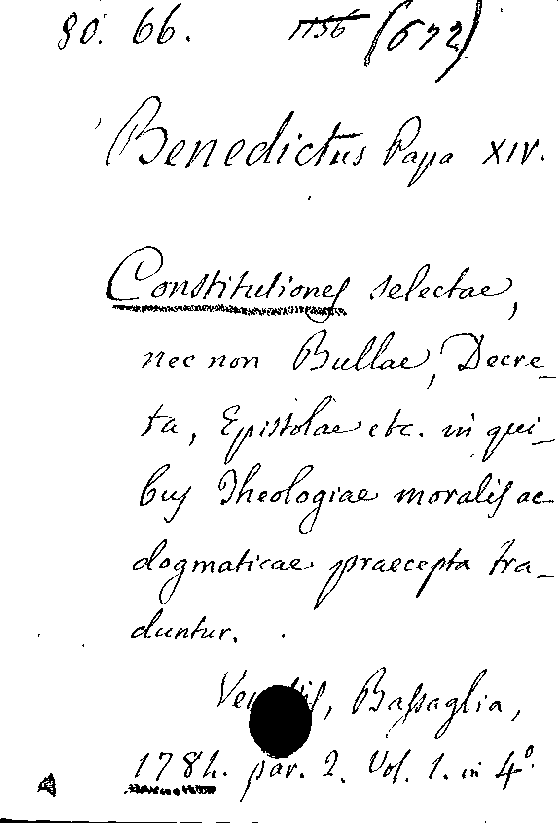 80. 66. 1156 (672)
Benedictus Papa XIV.
Constitutiones selectae,
nec non Bullae, Decre_
ta, Epistolae etc. in qui_
bus Theologiae moralis ac
dogmaticae praecepta tra_
duntur.
Bassaglia,
par. 2. Vol. 1. in 4º.